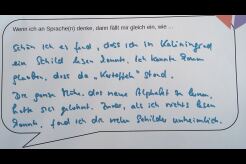 Wenn ich an Sprache(n) denke, dann fällt mir gleich ein, wie ...
Schön ich es fand, dass ich in Kaliningrad
ein Schild lesen konnte. Ich konnte kaum
glauben, dass da „Kartoffeln“ stand.
Die ganze Mühe, das neue Alphabet zu lernen,
hatte sich gelohnt. Zuvor, als ich nichts lesen
konnte, fand ich die vielen Schilder unheimlich.